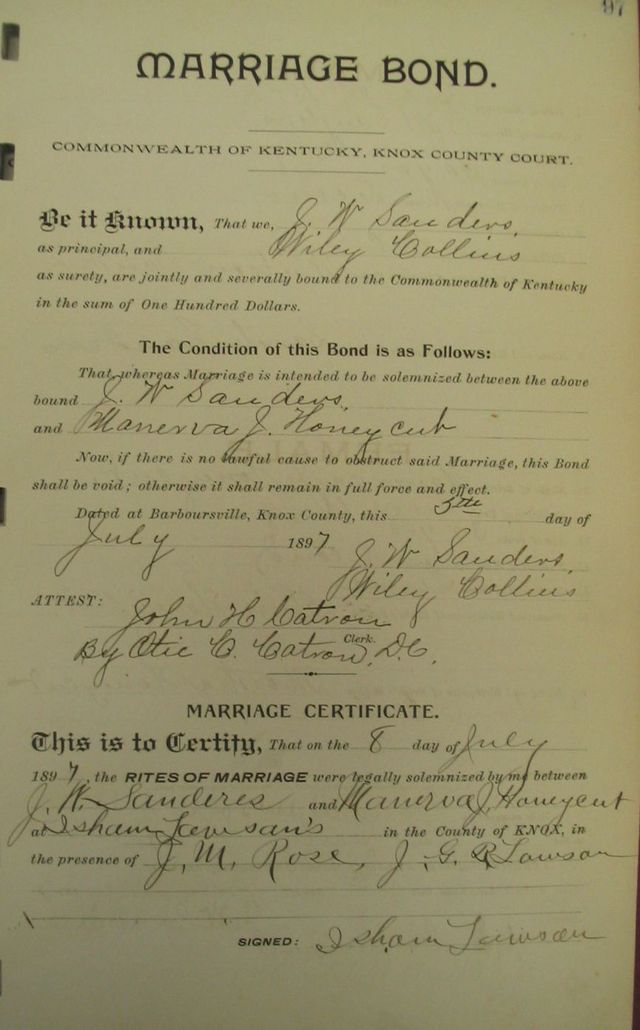 97
MARRIAGE BOND.
COMMONWEALTH OF KENTUCKY, KNOX COUNTY COURT.
Be it Known, That we, J. W Sanders,
as principal, and Wiley Collins
as surety, are jointly and severally bound to the Commonwealth of Kentucky
in the sum of One Hundred Dollars.
The Condition of this Bond is as Follows:
That whereas Marriage is intended to be solemnized between the above
bound J. W Sanders,
and Manerva J. Honeycut
Now, if there is no lawful cause to obstruct said Marriage, this Bond
shall be void; otherwise it shall remain in full force and effect.
Dated at Barboursville, Knox County, this 5th day of
July 1897
J. W Sanders,
Wiley Collins
ATTEST:
John H Catron
Clerk.
By Otie C. Catron, D.C.
MARRIAGE CERTIFICATE.
This is to Certify, That on the 8 day of July
1897, the RITES OF MARRIAGE were legally solemnized by me between
J. W. Sanderes and Manerva J. Honeycut
at Isham Lawsan's in the County of KNOX, in
the presence of J. M. Rose, J. G. R Lawson
SIGNED: Isham Lawson